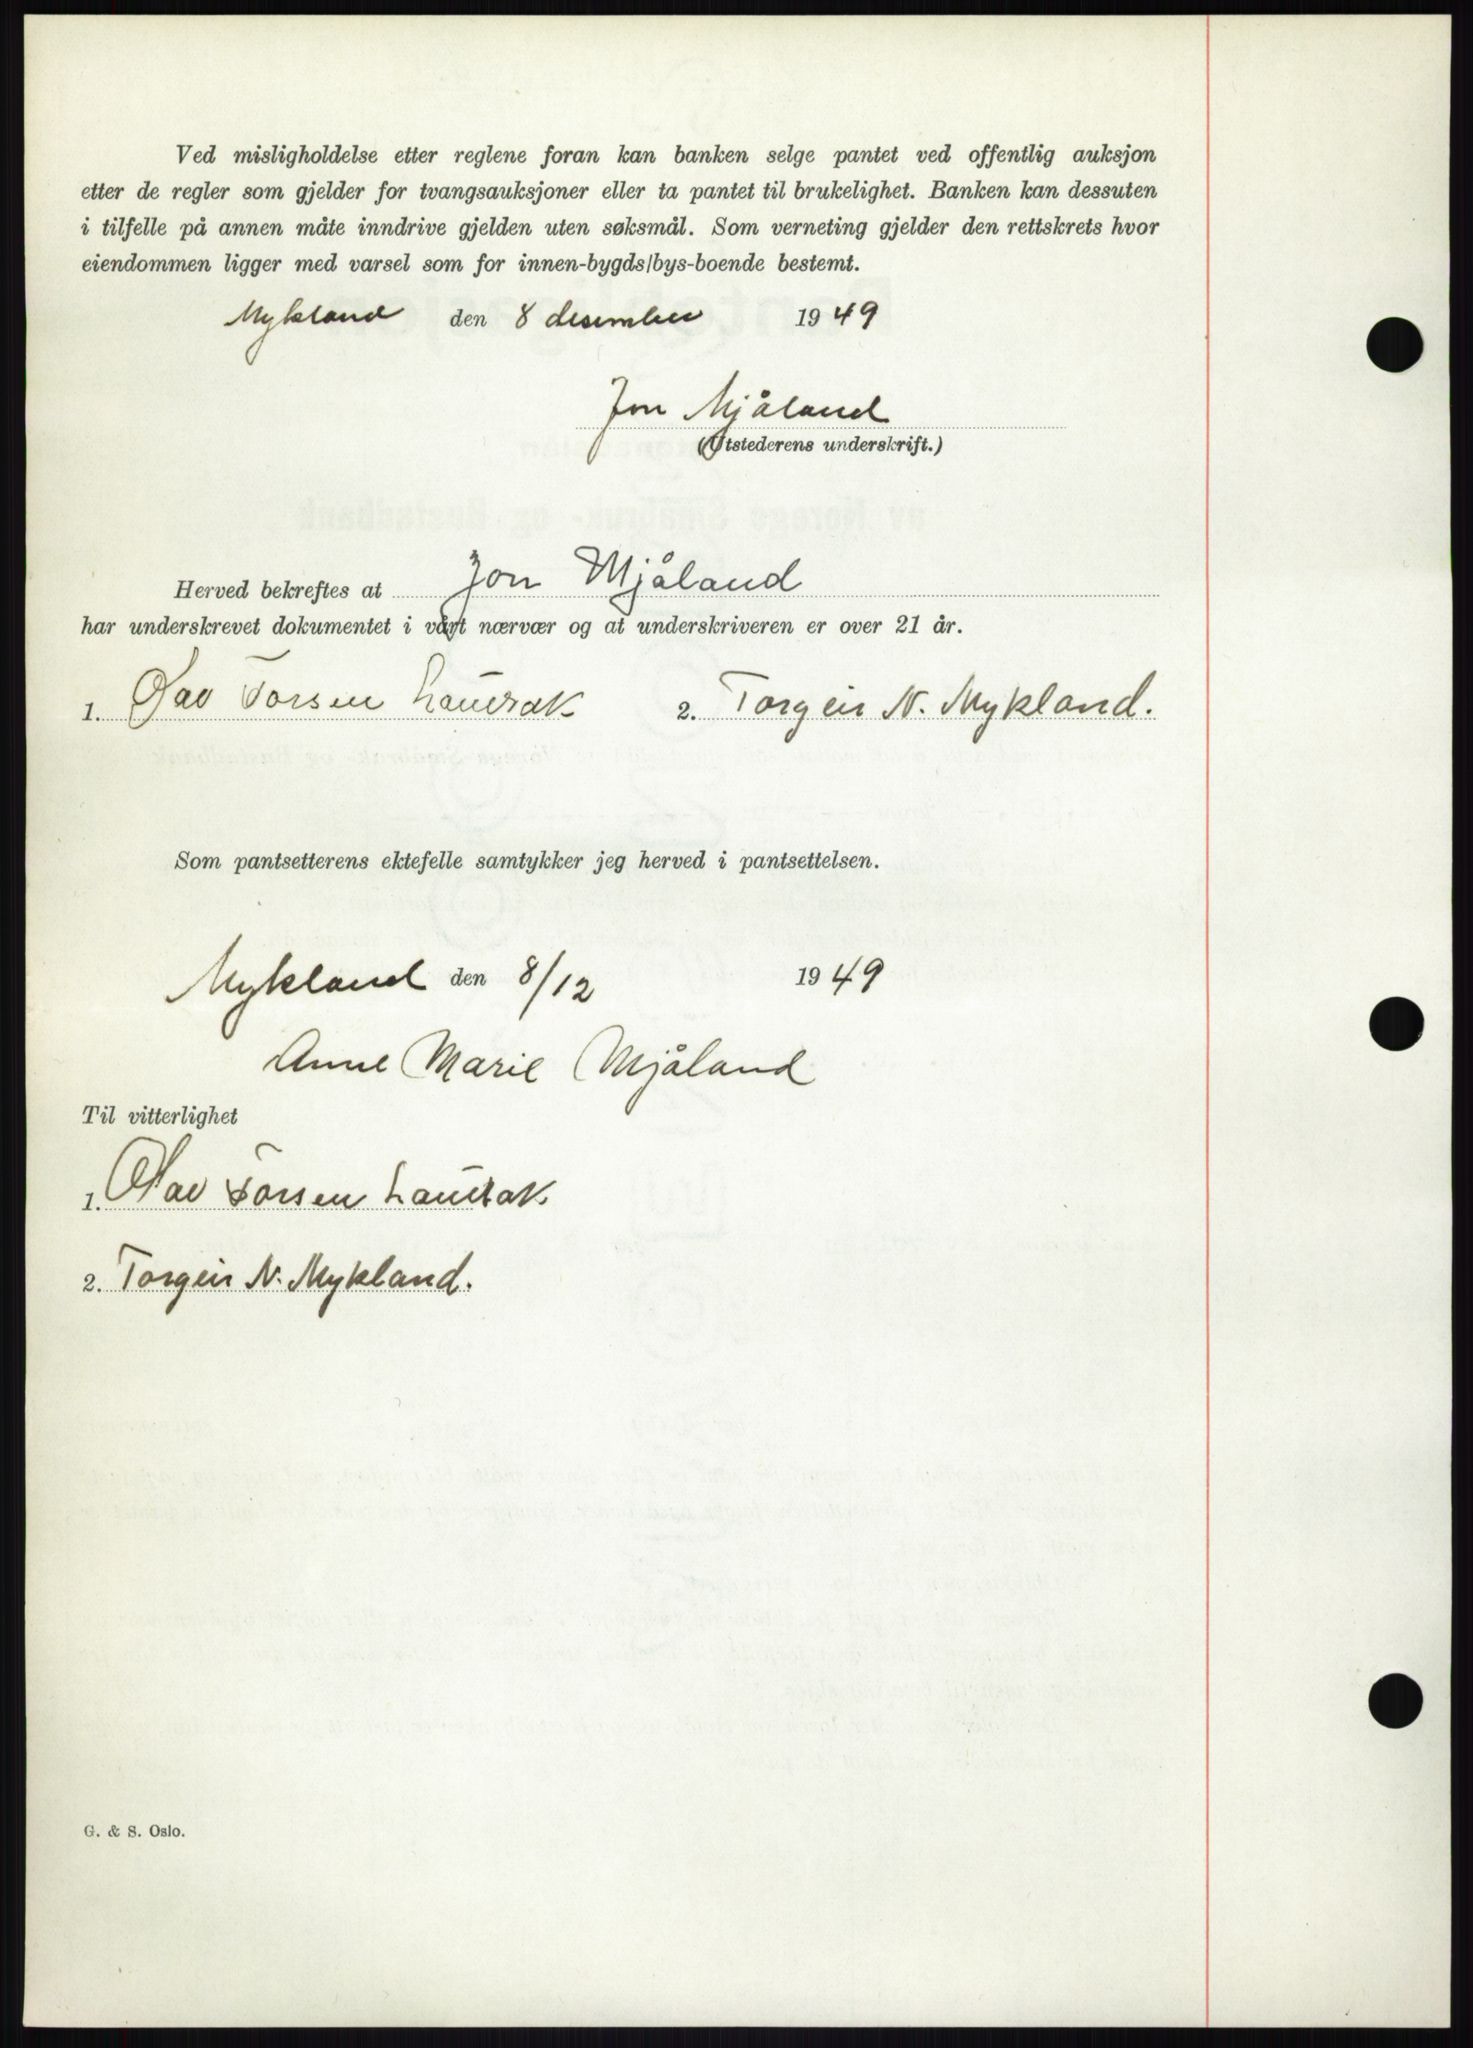 Ved misligholdelse etter reglene foran kan banken selge pantet ved offentlig auksjon
etter de regler som gjelder for tvangsauksjoner eller ta pantet til brukelighet. Banken kan dessuten
i tilfelle på annen måte inndrive gjelden uten søksmål. Som verneting gjelder den rettskrets hvor
eiendommen ligger med varsel som for innen-bygds/bys-boende bestemt.
Mykland den 8 desember 1949
Jon Mjåland
(Utstederens underskrift.)
Herved bekreftes at Jon Mjåland
har underskrevet dokumentet i vårt nærvær og at underskriveren er over 21 år.
1. Olav Torsen Laurak 2. Torgeir N. Mykland.
Som pantsetterens ektefelle samtykker jeg herved i pantsettelsen.
Mykland den 8/12 1949
Anne Marie Mjåland
Til vitterlighet
1. Olav Torsen
2. Torgeir N. Mykland.
G. & S. Oslo.